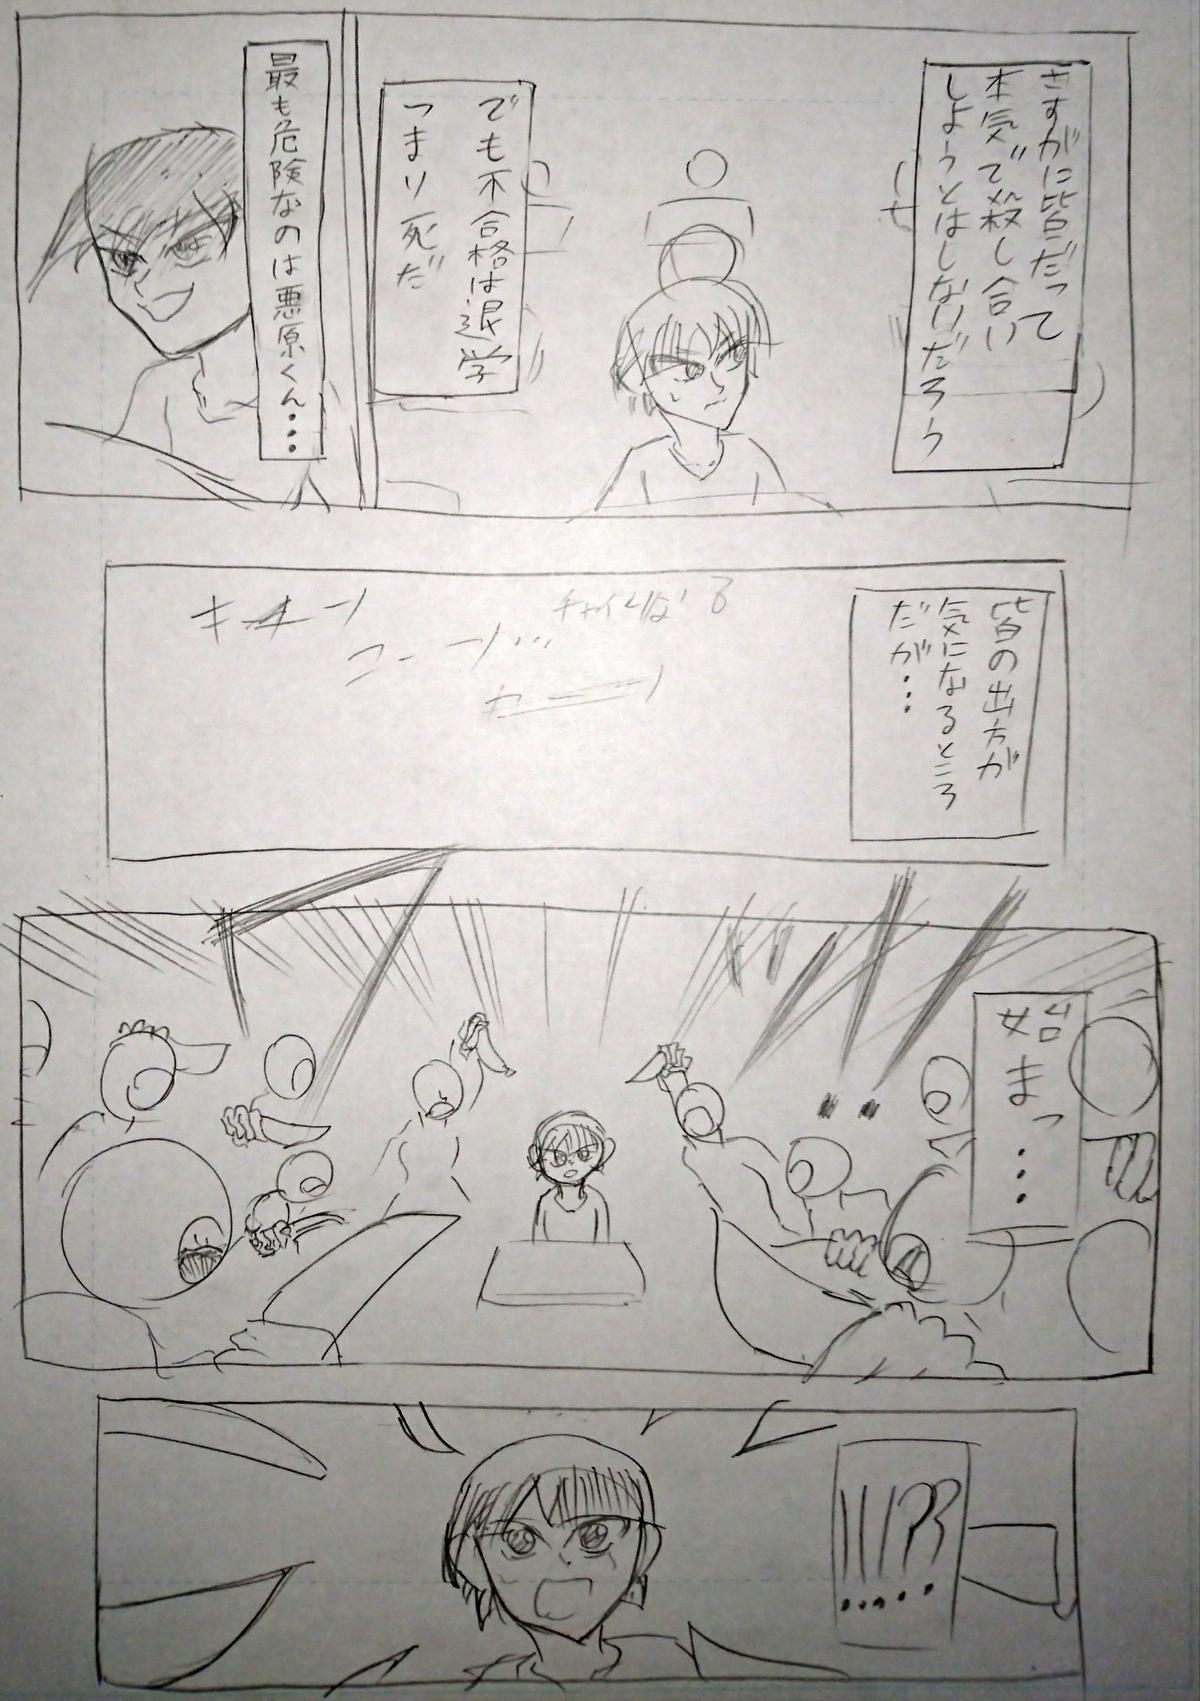 さすがに皆だって
本気で殺し合い
しようとはしないだろう
でも不合格は退学
つまり死だ
最も危険なのは悪原くん・・・
皆の出方が
気になるところ
だが・・・
チャイムなる
キーン
コーン…
カーーン
始
まっ
・・・
!!!??
・・・・・